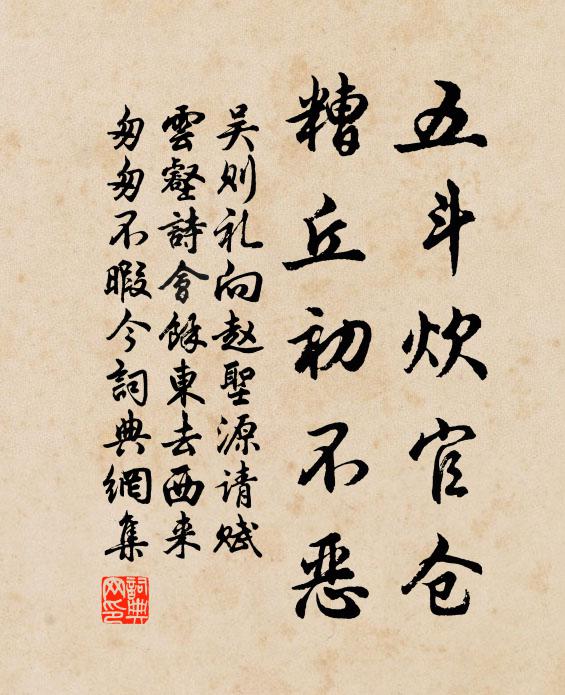 五斗炊官仓
糟丘初不恶
吴则礼向赵聖源请赋
雲壑詩會餘東去西来
匆匆不暇今詞典網集
詞典
网印